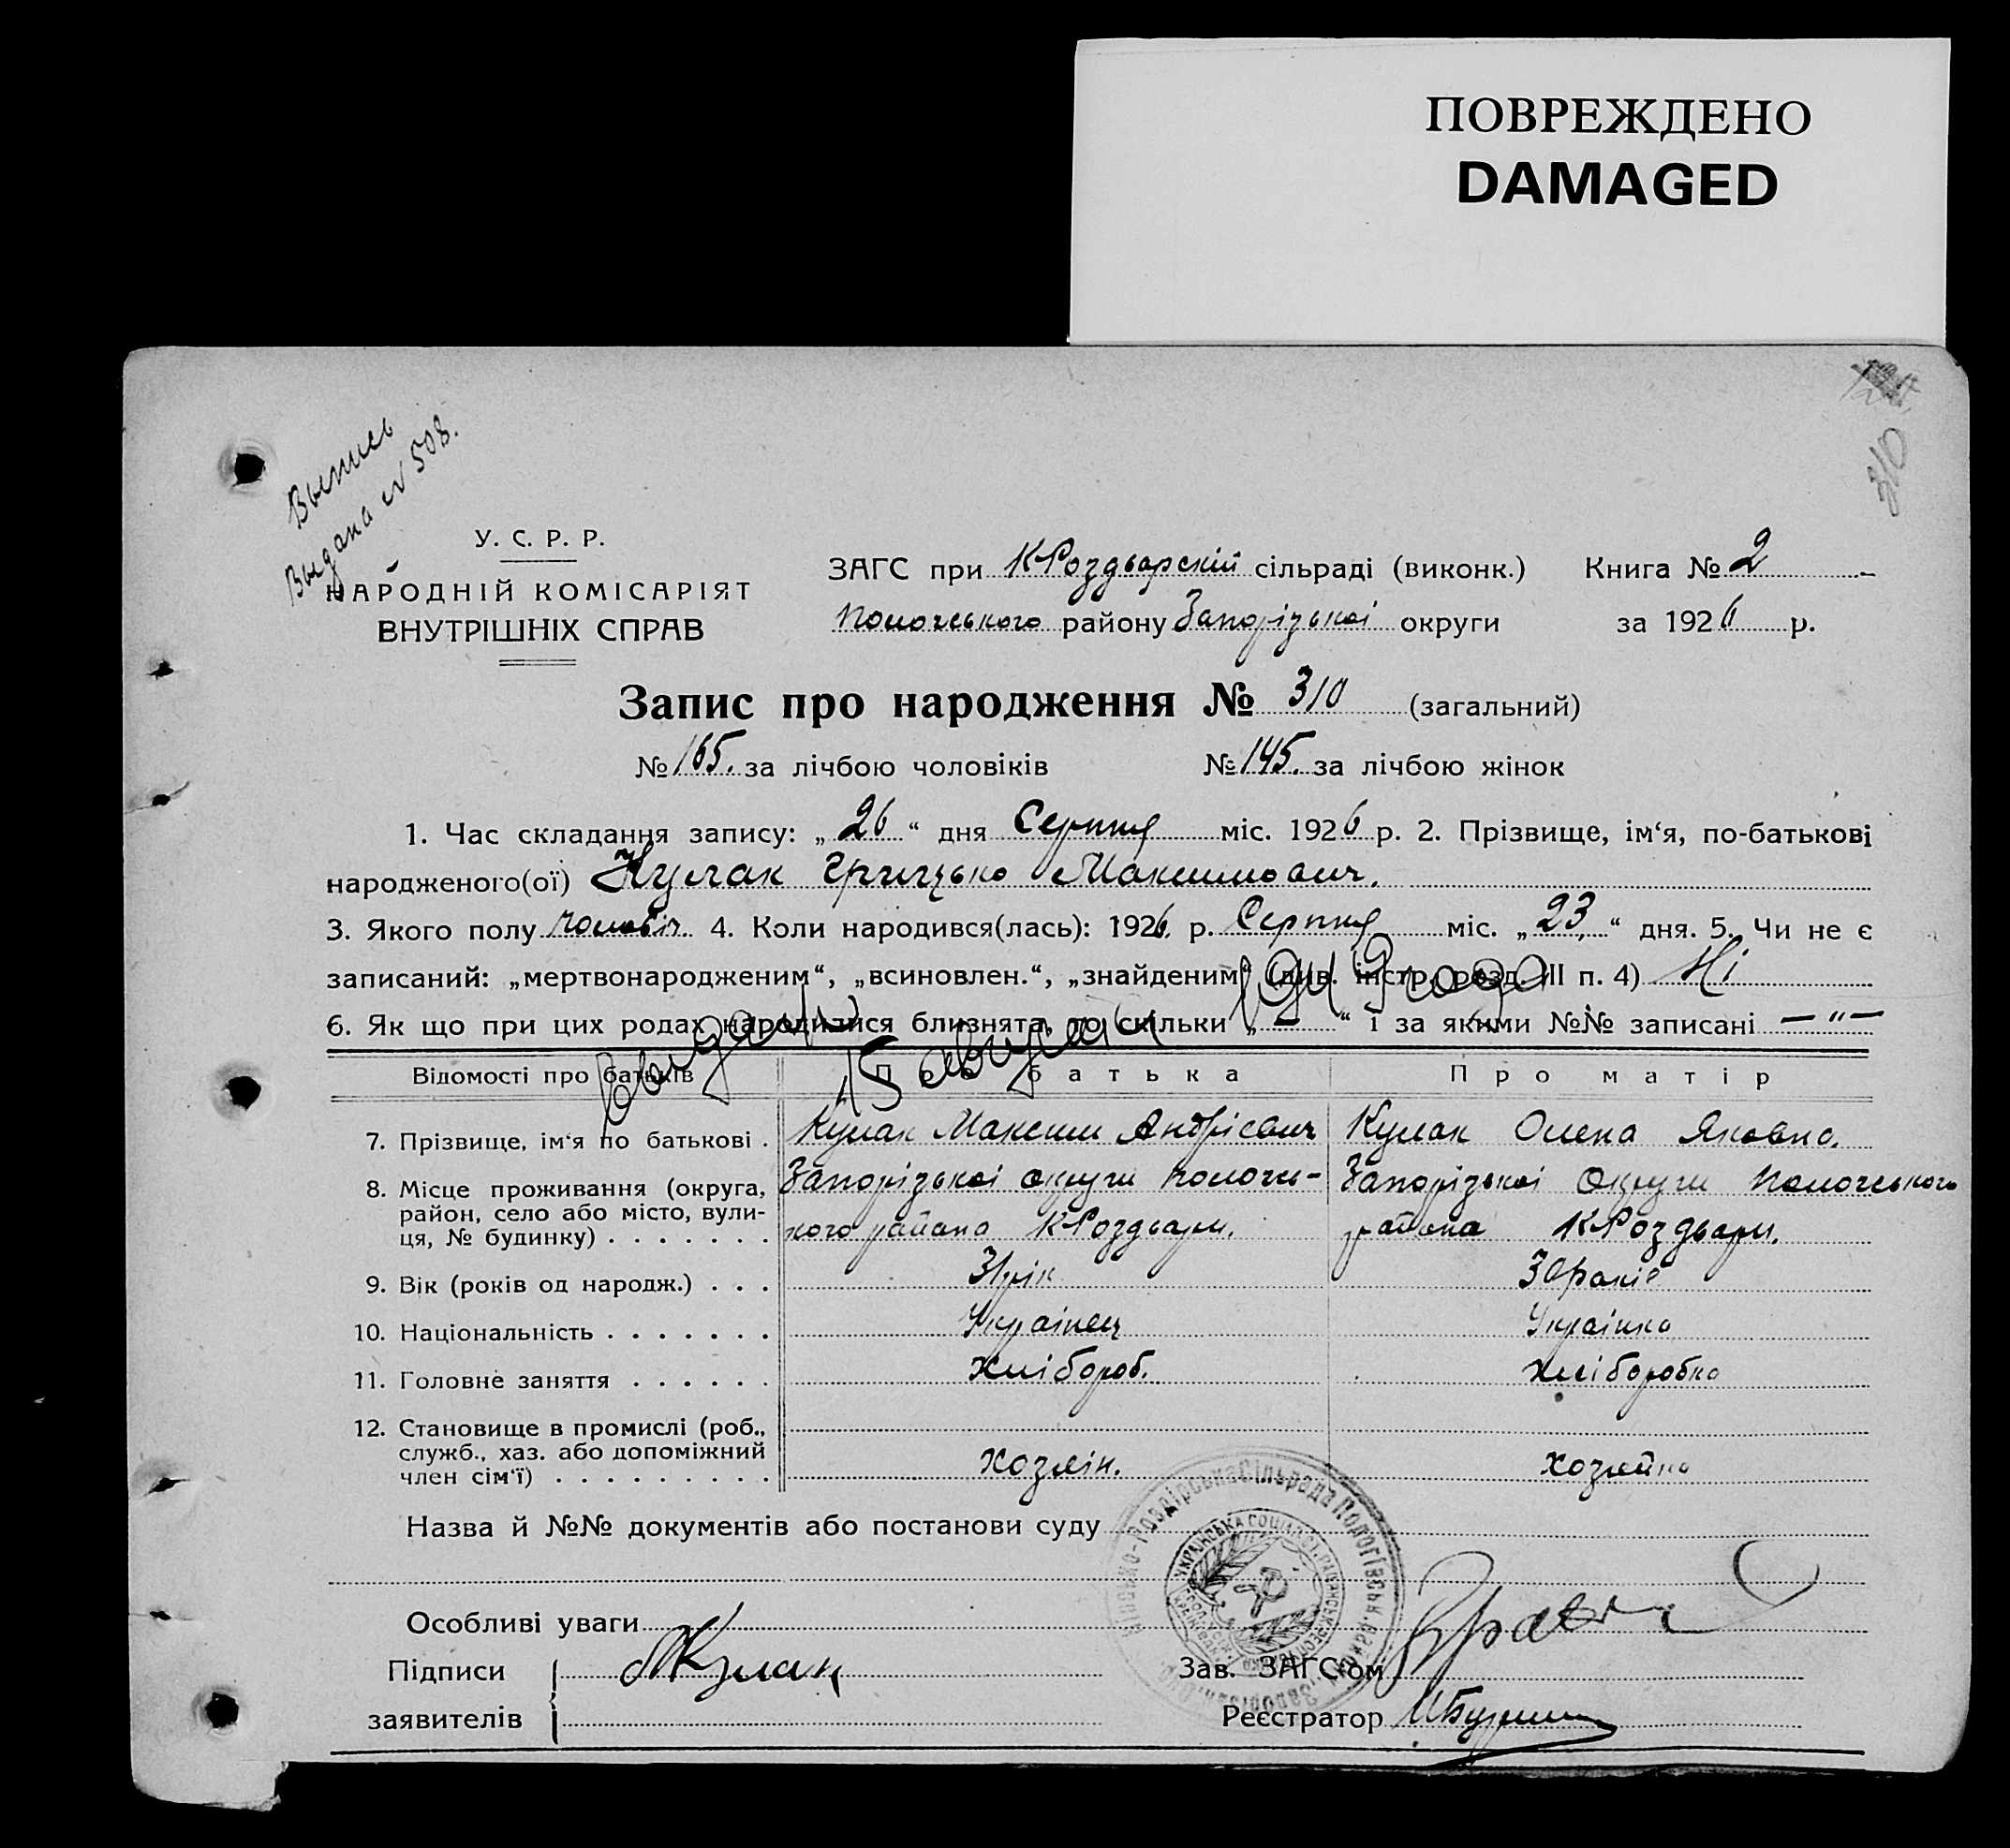 ПОВРЕЖДЕНО
DAMAGED
310
Выпись
Выдана № 508.
У. С. Р. Р.
НАРОДНІЙ КОМІСАРІЯТ
ВНУТРІШНІХ СПРАВ
ЗАГС при КРоздворскій сільраді (виконк.) Книга № 2
Пологського району Запорізькоі округи за 1926 р.
Запис про народження № 310 (загальний)
№ 165. за лічбою чоловіків № 145. за лічбою жінок
1. Час складання запису: „26“ дня Серпня міс. 1926 р. 2. Прізвище, ім‘я, по-батькові
народженого(ої) Кулак Грицько Максимович.
3. Якого полу чоловіч. 4. Коли народився(лась): 1926. р. Серпня міс. „23.“ дня. 5. Чи не є
записаний: „мертвонародженим“, „всиновлен.“, „знайденим“ (див. інстр. розд. III п. 4) Ні
6. Як що при цих родах народилися близнята, то скільки „—“ і за якими №№ записані — " —
15 августа
Відомості про батьків Про батька Про матір
7. Прізвище, ім‘я по батькові . Кулак Максим Андрієвич Кулак Олена Яковна.
8. Місце проживання (округа, Запорізькоі округи Пологсь- Запорізькоі Округи Пологського
район, село або місто, вули-
ця, № будинку) . . . . . . . кого района КРоздвари. района КРоздвари.
9. Вік (років од народж.) . . . 31 рік 30 років
10. Національність . . . . . . . Українец Українка
11. Головне заняття . . . . . . Хлібороб. хліборобка
12. Становище в промислі (роб.,
служб., хаз. або допоміжний
член сім‘ї) . . . . . . . . . Хозяін. хозяйка
Назва й №№ документів або постанови суду
Особливі уваги
Підписи МКулак Зав. ЗАГС‘ом
заявителів Реєстратор